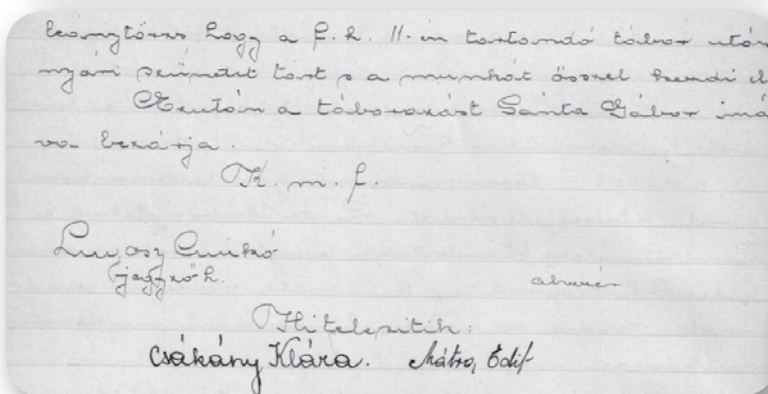 hogy a f. h. 11.-én tartandó tábor után
nyári szünetet tart s a munkát ősszel kezdi el
Ezután a táborozást Sánta Gábor imá
va bezárja.
K. m. f.
Enikó
jegyző h.
Hitelesitik:
Csákány Klára. Mátra, Edit